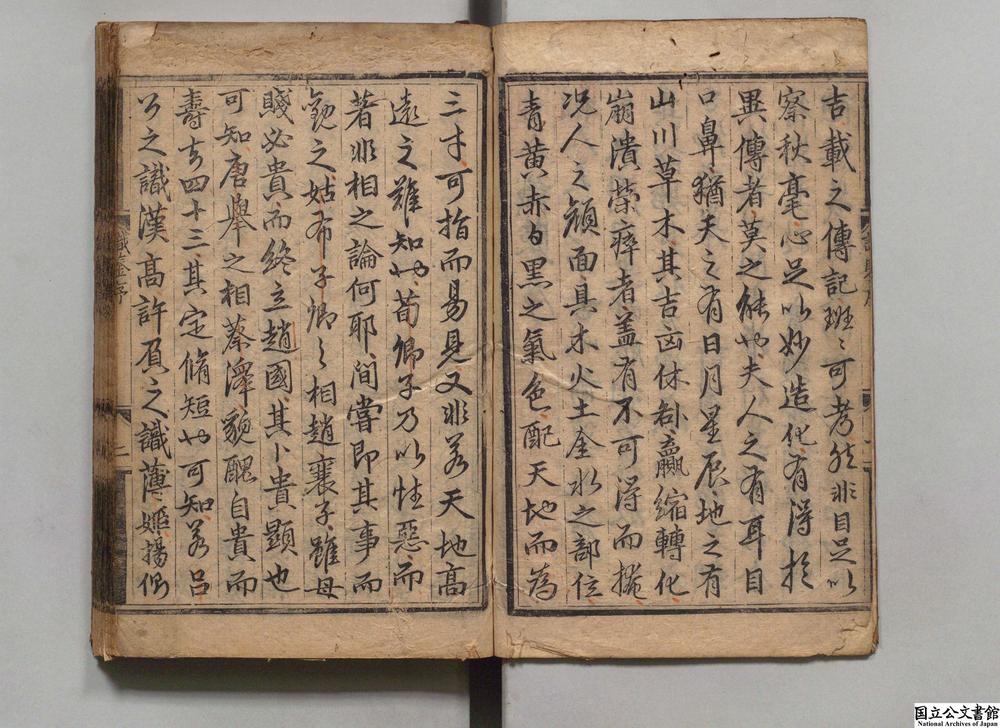 吉載之傳記班〻可考然非目足以
察秋毫心足以妙造化有得於
異傳者莫之能也夫人之有耳目
口鼻猶夫之有日月星辰地之有
山川草木其吉凶休咎贏縮轉化
崩潰榮瘁者盖有不可得而掩
况人之顔面具木火土金水之部位
青黄赤白黒之氣色配天地而為
三才可指而易見又非若天地高
遠之難知也荀卿子乃以性惡而
著非相之論何耶间嘗即其事而
觀之姑布子卿之相趙襄子雖母
賤必貴而終立趙國其卜貴顯也
可知唐舉之相蔡澤貌醜自貴而
壽古四十三其定脩短也可知若吕
公之識漢高許負之識薄姬揚
國立公文書館
National Archives of Japan